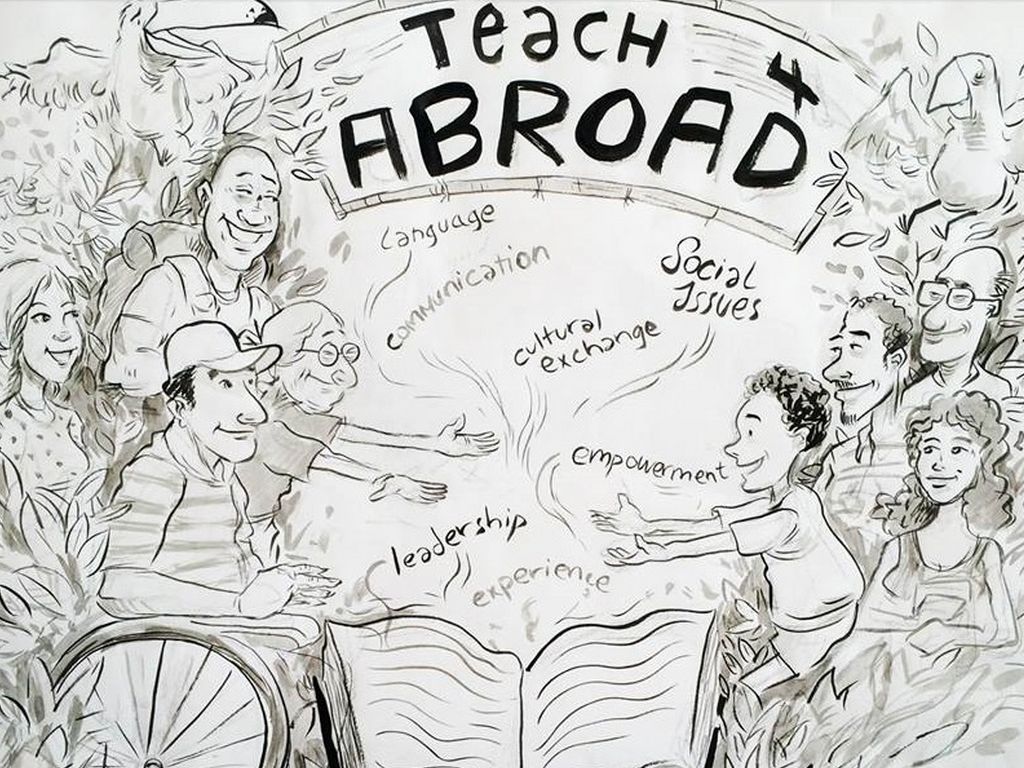 Teach
ABROAD 4
Language
communication
Social
Issues
cultural
exchange
empowerment
leadership
experience